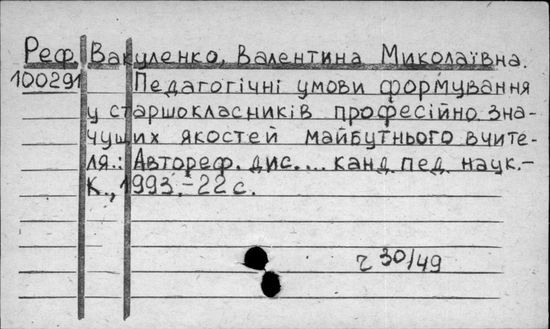 Реф Вакуленко, Валентина Миколаївна.
100291 Педагогічні умови формування
у старшокласників професійно зна-
чущих якостей майбутнього вчите-
ля.: Автореф. дис. ... канд. пед. наук.-
К., 1993.-22 с.
30/49